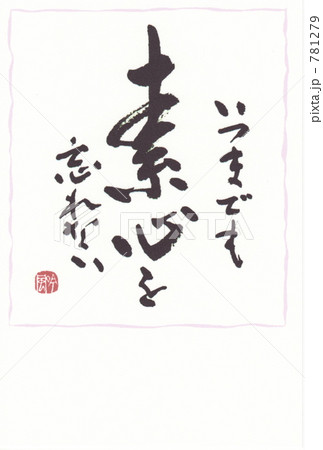 いつまでも
素心を
忘れない
PIXTA
pixta.jp - 781279